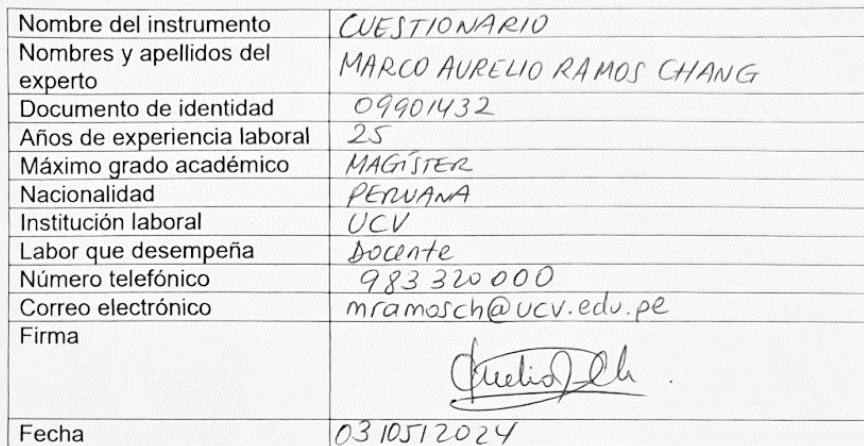 Nombre del instrumento CUESTIONARIO
Nombres y apellidos del
experto MARCO AURELIO RAMOS CHANG
Documento de identidad 09901432
Años de experiencia laboral 25
Máximo grado académico MAGÍSTER
Nacionalidad PERUANA
Institución laboral UCV
Labor que desempeña Docente
Número telefónico 983 320 000
Correo electrónico mramosch@ucv.edu.pe
Firma
Fecha 03/05/2024